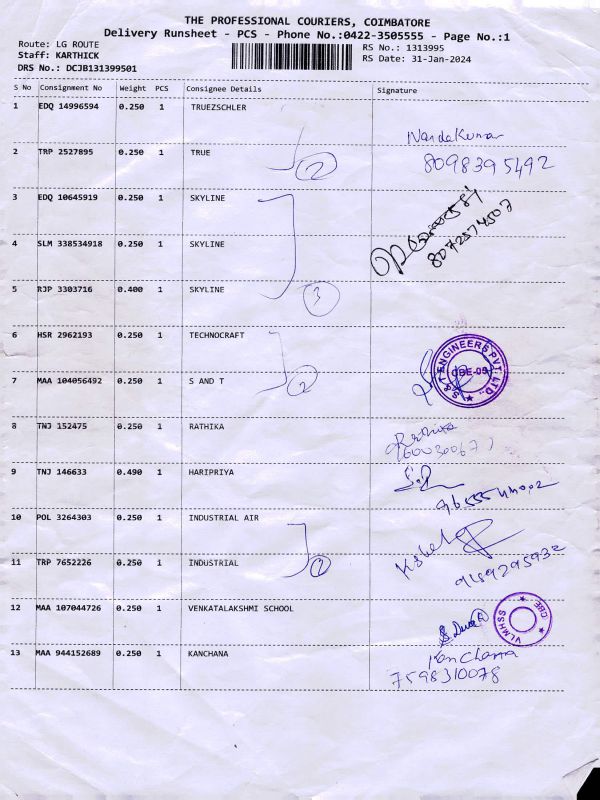 THE PROFESSIONAL COURIERS, COIMBATORE
Delivery Runsheet - PCS - Phone No.:0422-3505555 - Page No.:1
Route: LG ROUTE
RS No.: 1313995
Staff: KARTHICK
RS Date: 31-Jan-2024
DRS No.: DCJB131399501
S No Consignment No Weight PCS Consignee Details Signature
1 EDQ 14996594 0.250 1 TRUEZSCHLER
Nandakumar
2 TRP 2527895 0.250 1 TRUE
2
8098395492
3 EDQ 10645919 0.250 1 SKYLINE
8072574507
4 SLM 338534918 0.250 1 SKYLINE
5 RJP 3303716 0.400 1 SKYLINE
3
6 HSR 2962193 0.250 1 TECHNOCRAFT
7 MAA 104056492 0.250 1 S AND T
2
S&T ENGINEERS PVT. LTD.,
CBE-05
8 TNJ 152475 0.250 1 RATHIKA
9 TNJ 146633 0.490 1 HARIPRIYA
10 POL 3264303 0.250 1 INDUSTRIAL AIR
11 TRP 7652226 0.250 1 INDUSTRIAL
2
9159295932
12 MAA 107044726 0.250 1 VENKATALAKSHMI SCHOOL
VLMHSS CBE
13 MAA 944152689 0.250 1 KANCHANA
Kanchana
7598310078